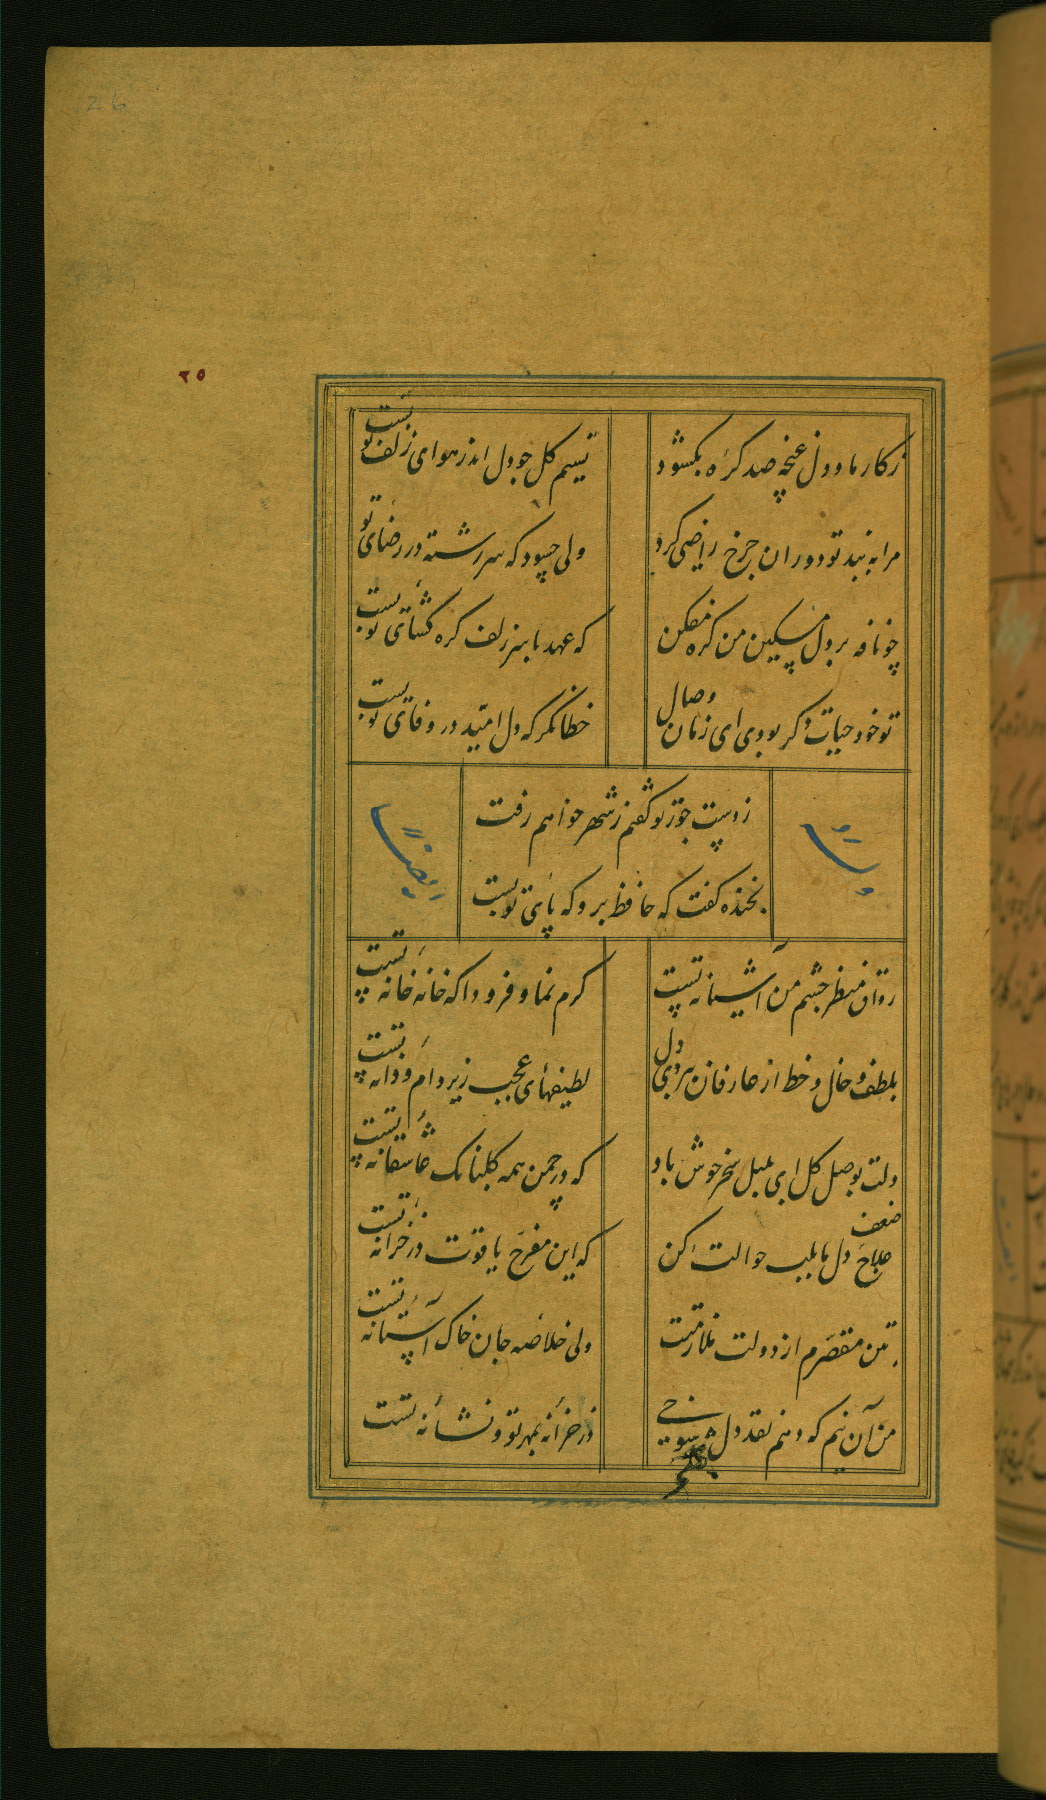 26
۲۵
زکار ما و دل غنچه صد کره بکشود نسیم کل جو دل اندر هوای زلف تو بست
مرا به بند تو دوران جرخ راضی کرد ولی جسود که سررشته در رضای تو
چو نافه بر دل مسکین من کره مفکن که عهد با سر زلف کره کشای تو بست
تو خود حیات دکر بودی ای زمان وصال خطا نکر که دل امید در وفای تو بست
ز دست جور تو کفتم ز شهر خواهم رفت
بخنده کفت که حافظ برو که پای تو بست
وله ایضا
رواق منظر جشم من آشیانه تست کرم نما و فرودا که خانه خانه تست
بلطف و خال و خط از عارفان بردی دل لطیفهای عجب زیر دام و دانه تست
دلت بوصل کل ای بلبل سحر خوش باد که در جمن همه کلبانک عاشقانه تست
علاج ضعف دل ما بلب حوالت کن که این مفرح یاقوت در خزانه تست
بتن مقصرم از دولت ملازمتت ولی خلاصه جان خاک آستانه تست
من آن نیم که دهم نقد دل بهر شوخی در خزانه بمهر تو و نشانه تست